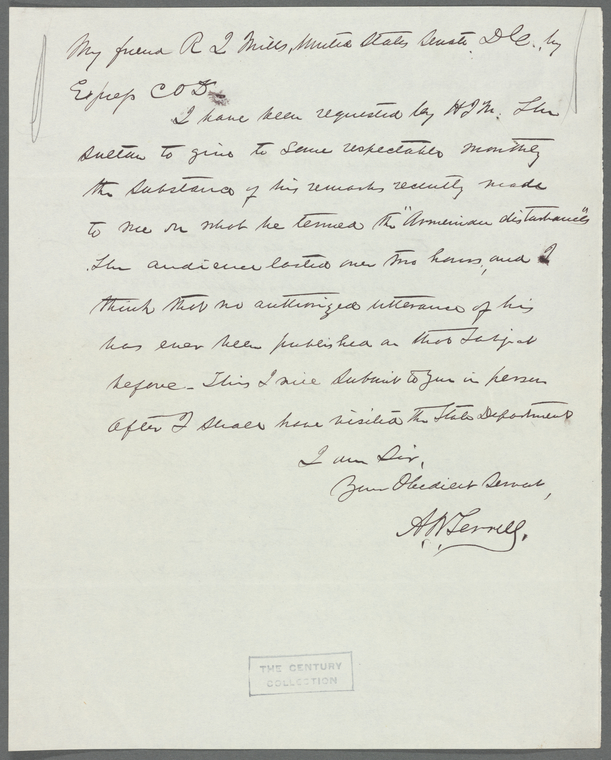 My friend R Q Mills, United States Senate. D.C., by
Express C O D.
I have been requested by H.I.M. The
Sultan to give to some respectable monthly
the substance of his remarks recently made
to me on what he termed the "Armenian disturbances"
The audience lasted over two hours, and I
think that no authorized utterance of his
has ever been published on that subject
before - This I will submit to you in person
after I shall have visited the State Department
I am Sir,
Your Obedient Servant,
A.W. Terrell.
THE CENTURY
COLLECTION